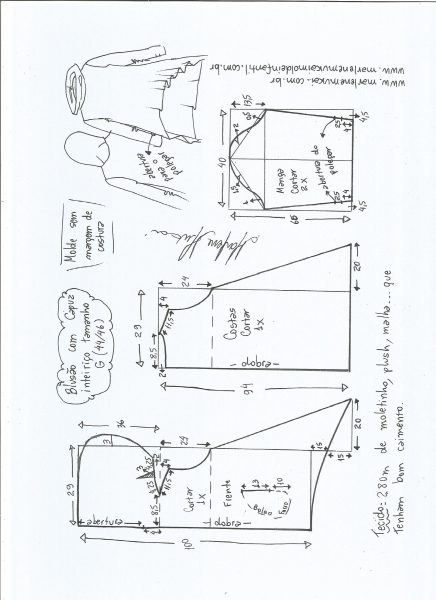 www.marlenemukai.com.br
www.marlenemukaimoldeinfantil.com.br
abertura
para o
polegar
Molde sem
margem de
costura
Blusão com Capuz
inteiriço tamanho
G (44/46)
Marlene Mukai
13,5
40
2
1,5
Manga
Cortar
2x
abertura do
polegar
25
4
25
4
4,5
4,5
60
24
4
29
11,5
8,5
2
Costas
Cortar
1x
dobra
20
94
36
3
29
costura
24
4
11,5
8,5
Cortar
1x
Frente
dobra
13
10
bolso
15
15
20
100
Tecido: 2.80m de moletinho, plush, malha... que
Tenham bom caimento.